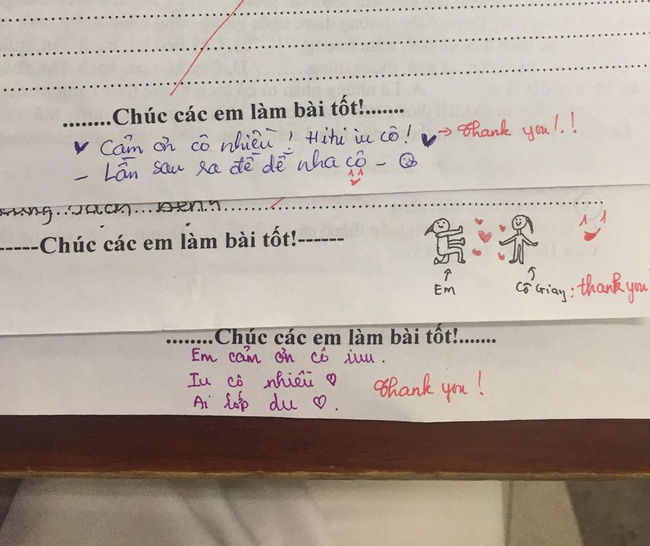 ........Chúc các em làm bài tốt!.......
Cảm ơn cô nhiều! Hihi iu cô! → Thank you!!
- Lần sau ra đề dễ nha cô -
sách bệnh
-----Chúc các em làm bài tốt!------
Em
Cô Giay: thank you!
........Chúc các em làm bài tốt!.......
Em cảm ơn cô iuu.
Iu cô nhiều Thank you!
Ai lớp du.